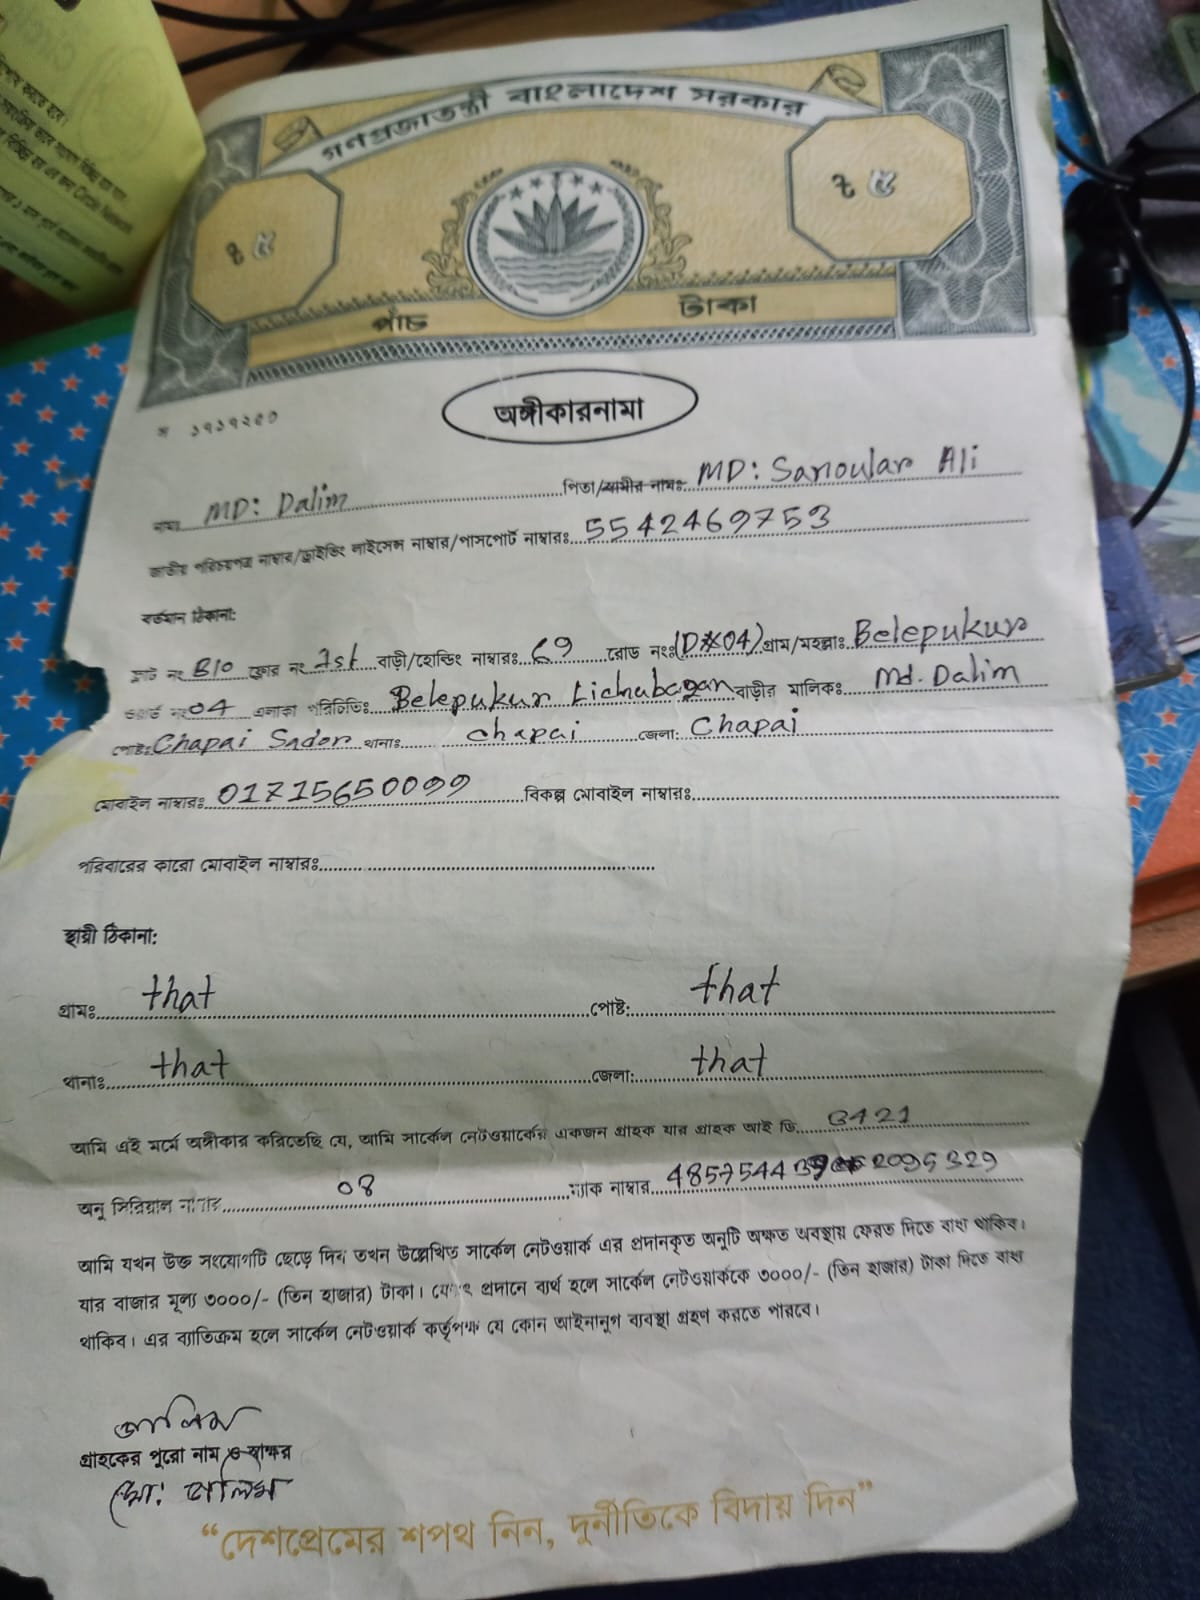 গণপ্রজাতন্ত্রী বাংলাদেশ সরকার
৳ ৫ ৳ ৫
পাঁচ টাকা
অঙ্গীকারনামা
নামঃ MD: Dalim পিতা/স্বামীর নামঃ MD: Sanoular Ali
জাতীয় পরিচয়পত্র নাম্বার/ড্রাইভিং লাইসেন্স নাম্বার/পাসপোর্ট নাম্বারঃ 5542469753
বর্তমান ঠিকানা:
ফ্লাট নং B10 ফ্লোর নং 1st বাড়ী/হোল্ডিং নাম্বারঃ 69 রোড নংঃ গ্রাম/মহল্লাঃ Belepukur
ওয়ার্ড নং 04 এলাকা পরিচিতিঃ Belepukur Lichubagan বাড়ীর মালিকঃ Md. Dalim
পোষ্টঃ Chapai Sador থানাঃ chapai জেলা: Chapai
মোবাইল নাম্বারঃ 01715650099 বিকল্প মোবাইল নাম্বারঃ
পরিবারের কারো মোবাইল নাম্বারঃ
স্থায়ী ঠিকানা:
গ্রামঃ that পোষ্ট: that
থানাঃ that জেলা: that
আমি এই মর্মে অঙ্গীকার করিতেছি যে, আমি সার্কেল নেটওয়ার্কের একজন গ্রাহক যার গ্রাহক আই ডি
অনু সিরিয়াল নাম্বার 08 ম্যাক নাম্বার
আমি যখন উক্ত সংযোগটি ছেড়ে দিব তখন উল্লেখিত সার্কেল নেটওয়ার্ক এর প্রদানকৃত অনুটি অক্ষত অবস্থায় ফেরত দিতে বাধ্য থাকিব।
যার বাজার মূল্য ৩০০০/- (তিন হাজার) টাকা। ফেরৎ প্রদানে ব্যর্থ হলে সার্কেল নেটওয়ার্ককে ৩০০০/- (তিন হাজার) টাকা দিতে বাধ্য
থাকিব। এর ব্যাতিক্রম হলে সার্কেল নেটওয়ার্ক কর্তৃপক্ষ যে কোন আইনানুগ ব্যবস্থা গ্রহণ করতে পারবে।
ডালিম
গ্রাহকের পুরো নাম ও স্বাক্ষর
মো: ডালিম
“দেশপ্রেমের শপথ নিন, দুর্নীতিকে বিদায় দিন”